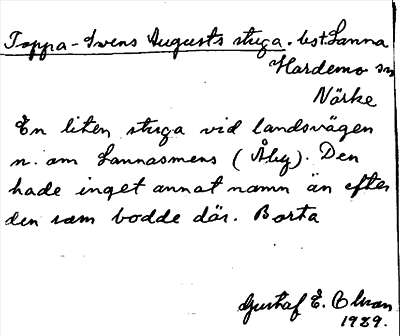 Toppa-Svens Augusts stuga. bst. Lanna
Hardemo sn
Närke
En liten stuga vid landsvägen
n. om Lannasmens (Åby). Den
hade inget annat namn än efter
den som bodde där. Borta
Gustaf E. Olson
1939.